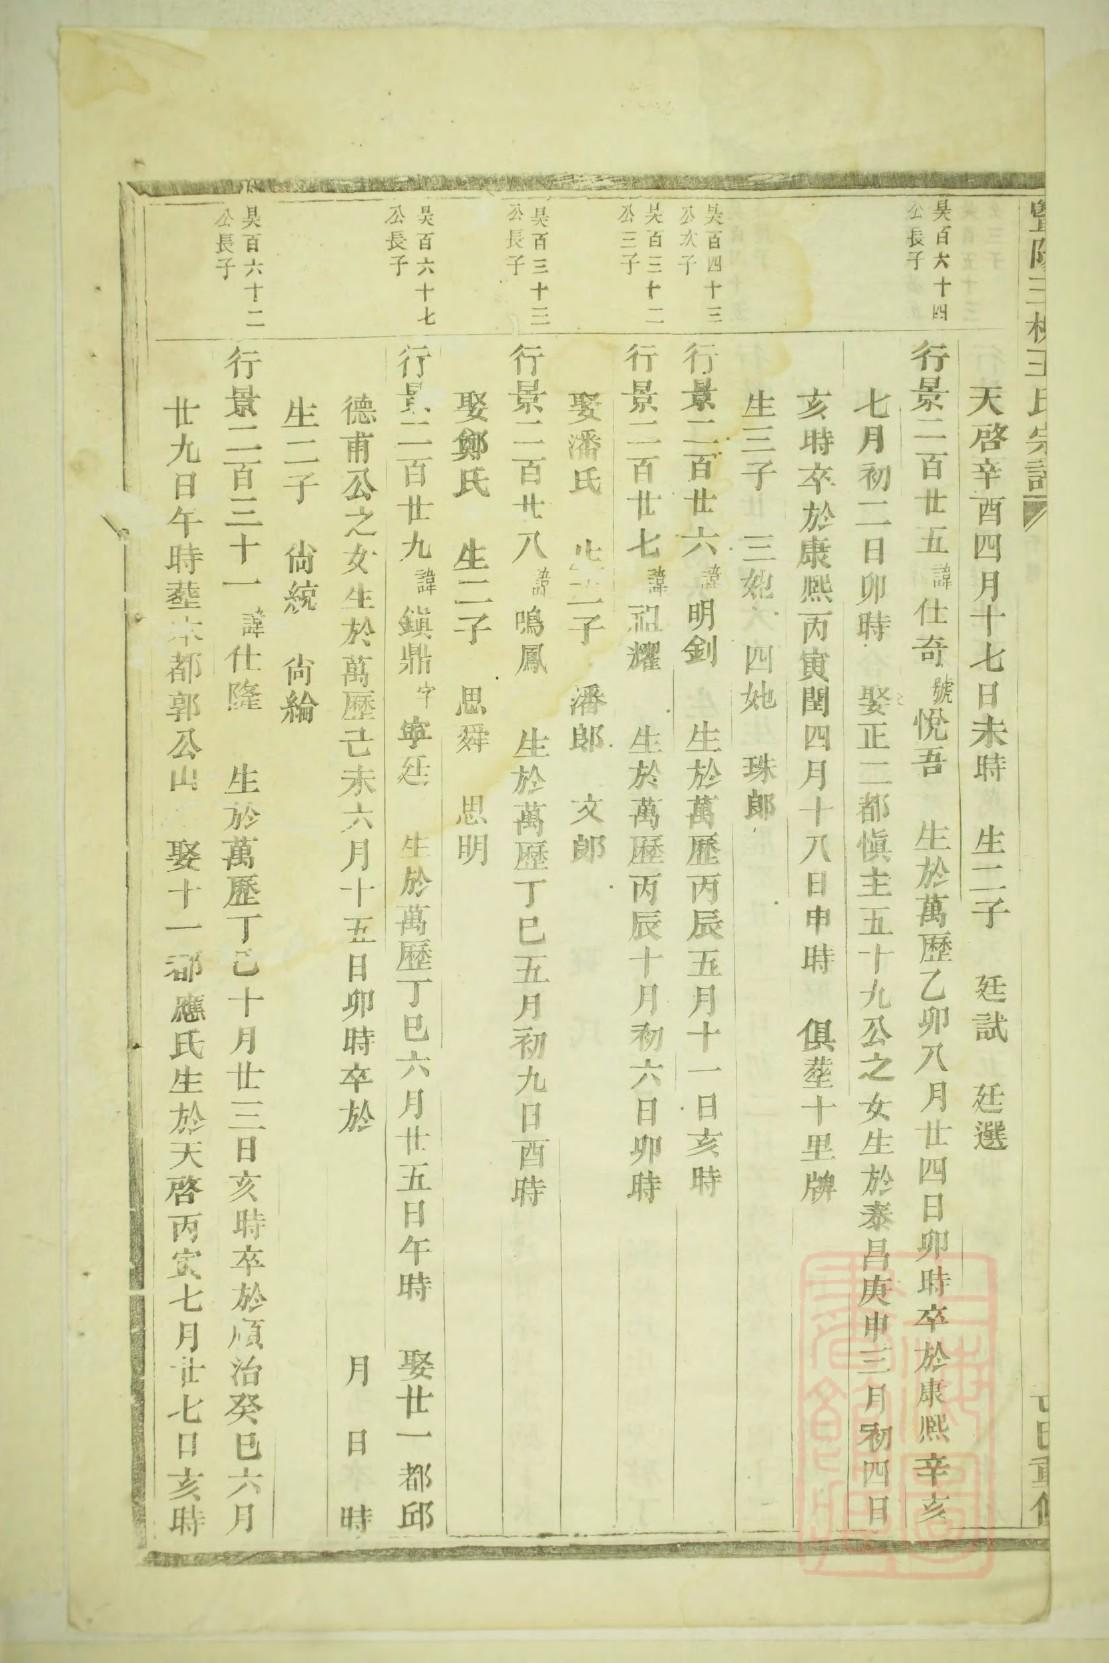 天啓辛酉四月十七日未時 生二子 廷試 廷選
昊百六十四
公長子
行景二百廿五諱仕奇號悅吾 生於萬歷乙卯八月廿四日卯時卒於康熙辛亥
七月初二日卯時 娶正二都愼主五十九公之女生於泰昌庚申三月初四日
亥時卒於康熙丙寅閏四月十八日申時 俱塟十里牌
生三子 三她 四她 珠郎
昊百四十三
公次子
行景二百廿六諱明釗 生於萬歷丙辰五月十一日亥時
昊百三十二
公三子
行景二百廿七諱 耀 生於萬歷丙辰十月初六日卯時
娶潘氏 生二子 潘郎 文郎
昊百三十三
公長子
行景二百廿八諱鳴鳳 生於萬歷丁巳五月初九日酉時
娶鄭氏 生二子 思舜 思明
昊百六十七
公長子
行景二百廿九諱鎭鼎字寧廷 生於萬歷丁巳六月廿五日午時 娶廿一都邱
德甫公之女生於萬歷己未六月十五日卯時卒於 月 日 時
生二子 尙統 尙綸
昊百六十二
公長子
行景二百三十一諱仕隆 生於萬歷丁巳十月廿三日亥時卒於順治癸巳六月
廿九日午時塟本都郭公山 娶十一都應氏生於天啓丙寅七月廿七日亥時